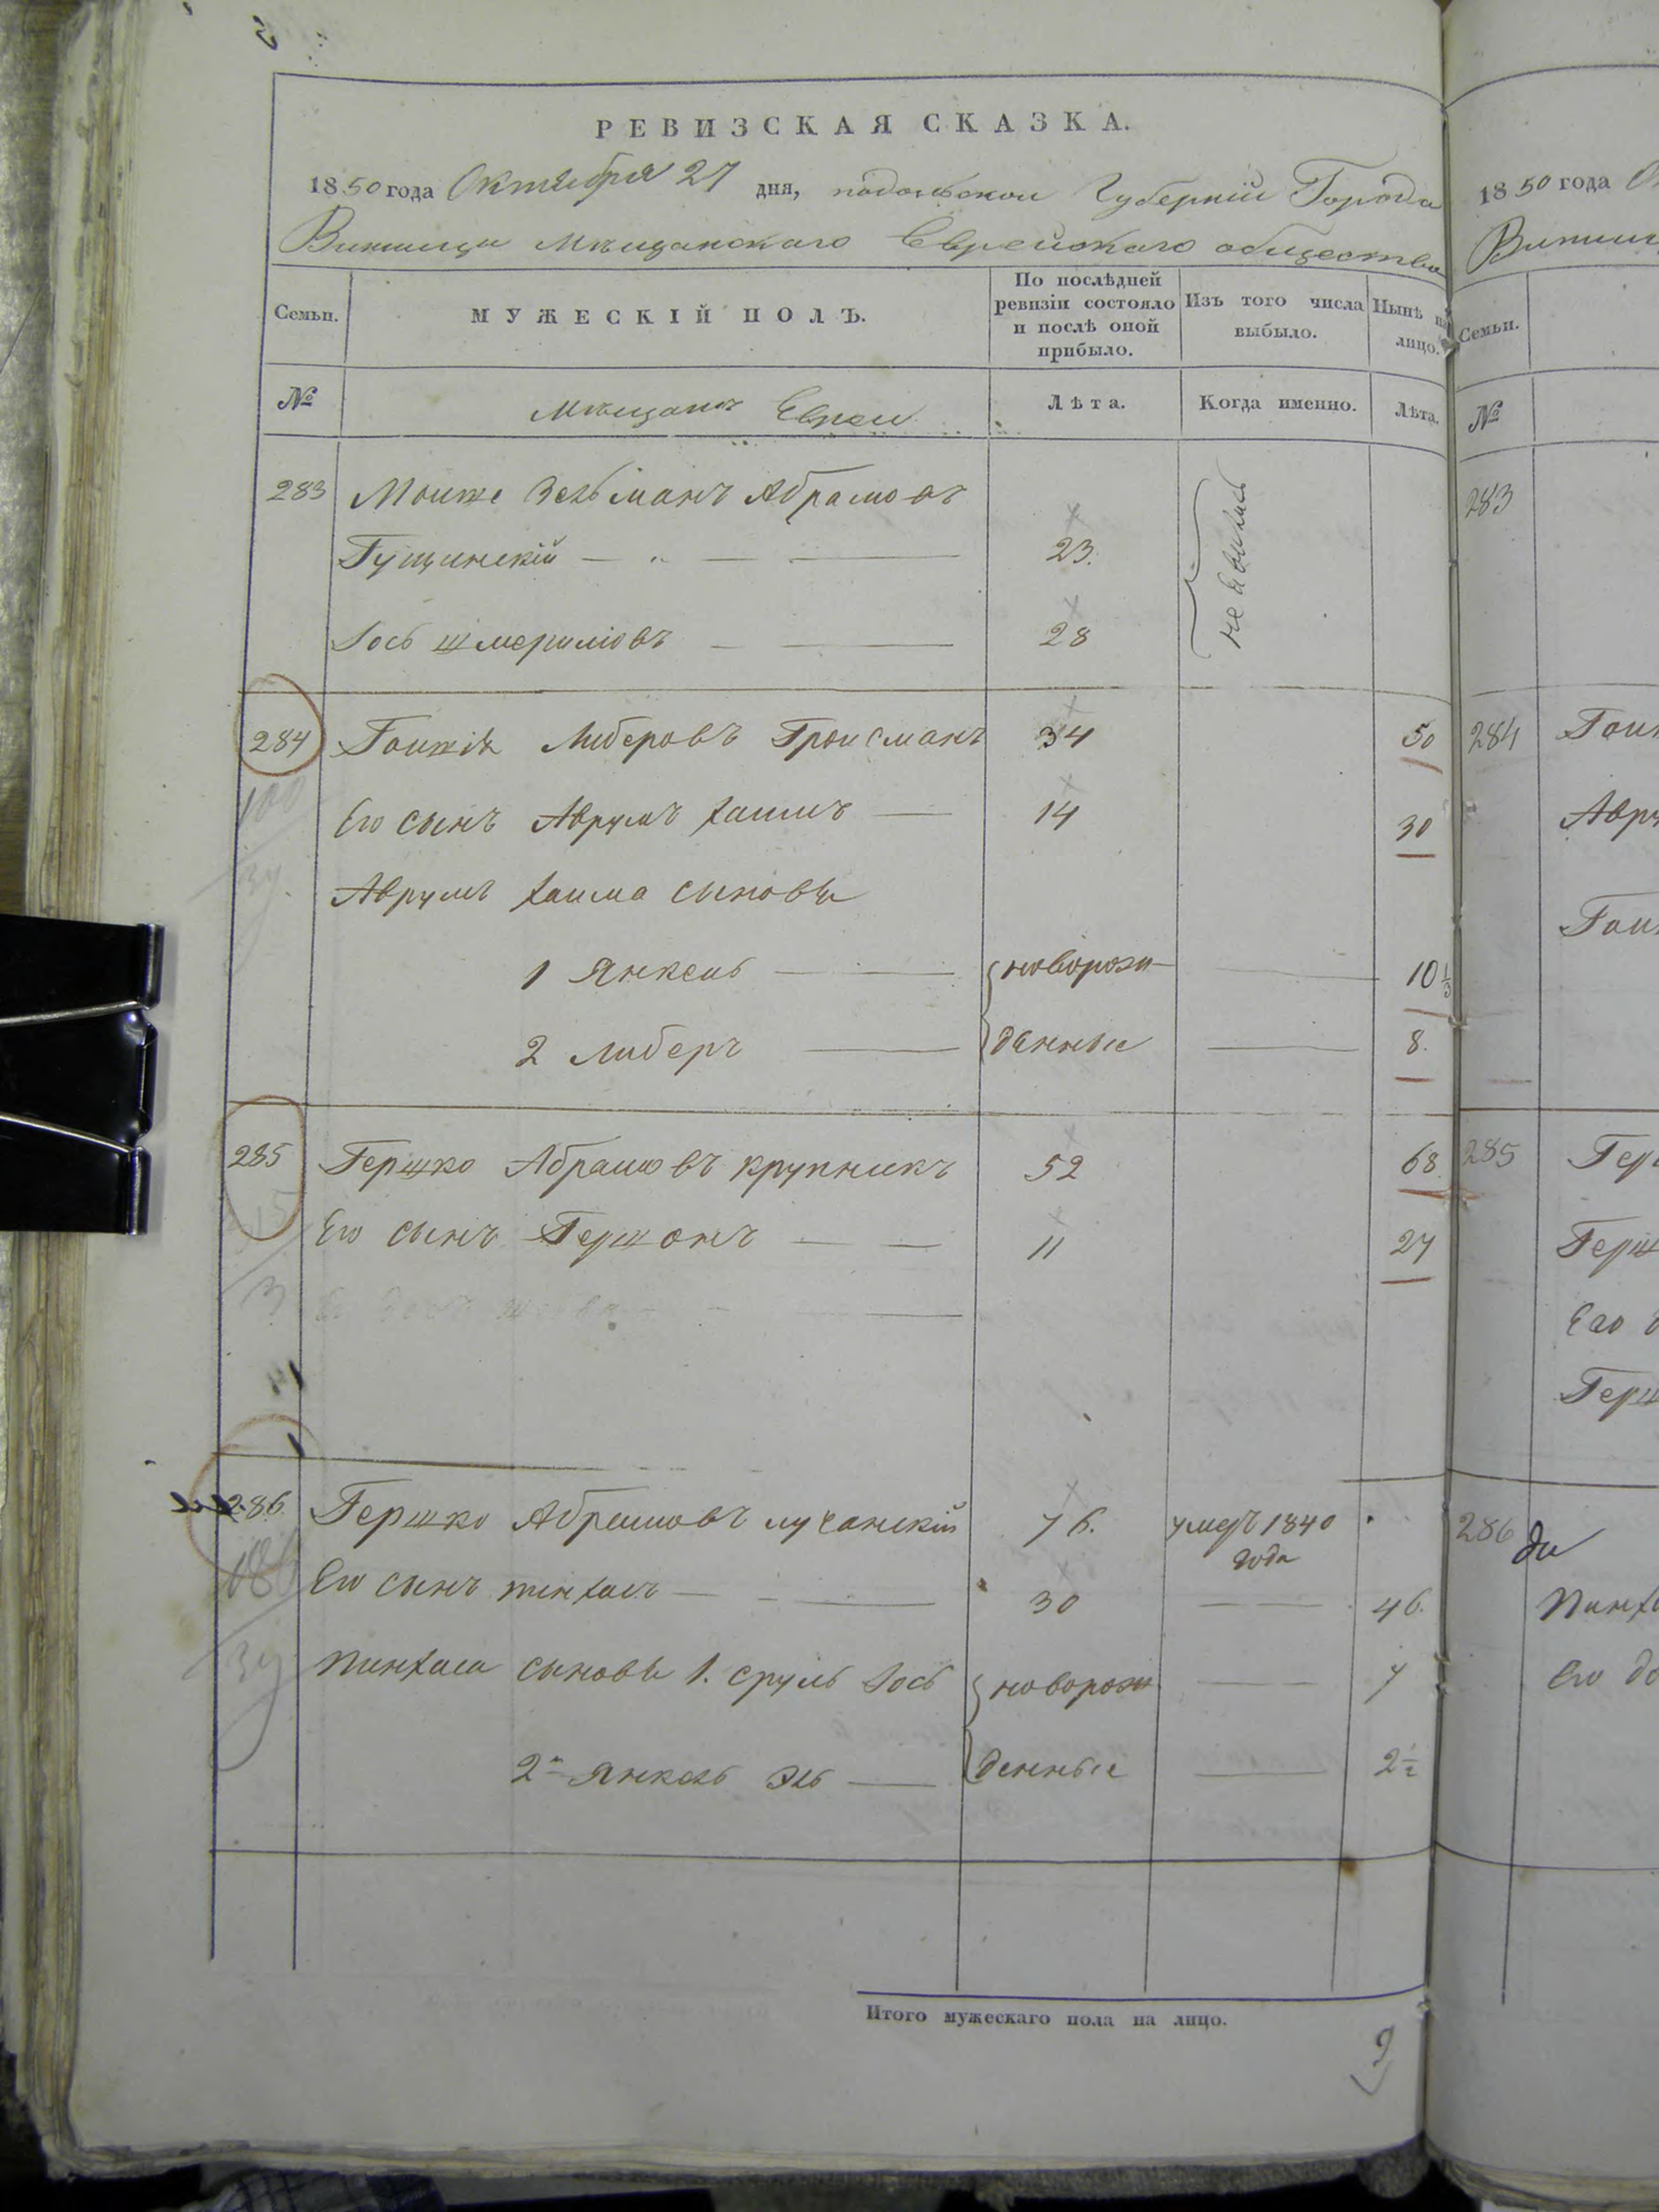 РЕВИЗСКАЯ СКАЗКА.
1850 года Октября 27 дня, подольской Губерніи Города
Винницы Мѣщанскаго Еврейскаго общества
Семьи.
МУЖЕСКІЙ ПОЛЪ.
По послѣдней ревизіи состояло и послѣ оной прибыло.
Изъ того числа выбыло.
Нынѣ на лицо.
№
Мѣщанъ Евреи
Лѣта.
Когда именно.
Лѣта.
283 Мошко Зельманъ Абрамовъ
Гущинскій 23.
Іось Шмериловъ 28
не явились
284 Либеровъ Гройсманъ 34 50
Его сынъ Аврумъ Хаимъ 14 30
Аврумъ Хаима сыновья
1 Янкель новорож 10 1/3
2 Либеръ денные 8.
285 Гершко Абрамовъ крупникъ 52 68
Его сынъ Гершонъ 11 27
286. Гершко Абрамовъ лучанскій 76. умеръ 1840
года
Его сынъ пинхасъ 30 46.
Пинхаса сыновья 1. сруль Іось новорож 7
2й Янкель Эль денные 2 1/2
Итого мужескаго пола на лицо.
1850 года
Семьи.
№
283
284
Авру
285
Герш
Его
Герш
286
Пинх
Его до